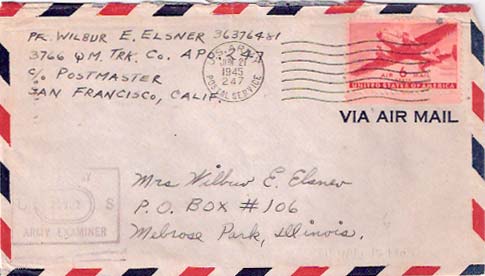 PFC. WILBUR E. ELSNER 36376481
3766 Q.M. TRK. Co. APO 247
c/o POSTMASTER
SAN FRANCISCO, CALIF.
U.S. ARMY
JUN 21
1945
247
POSTAL SERVICE
6
AIR MAIL
UNITED STATES OF AMERICA
VIA AIR MAIL
Mrs Wilbur E. Elsner
P.O. BOX #106
Melrose Park, Illinois.
U S
ARMY EXAMINER